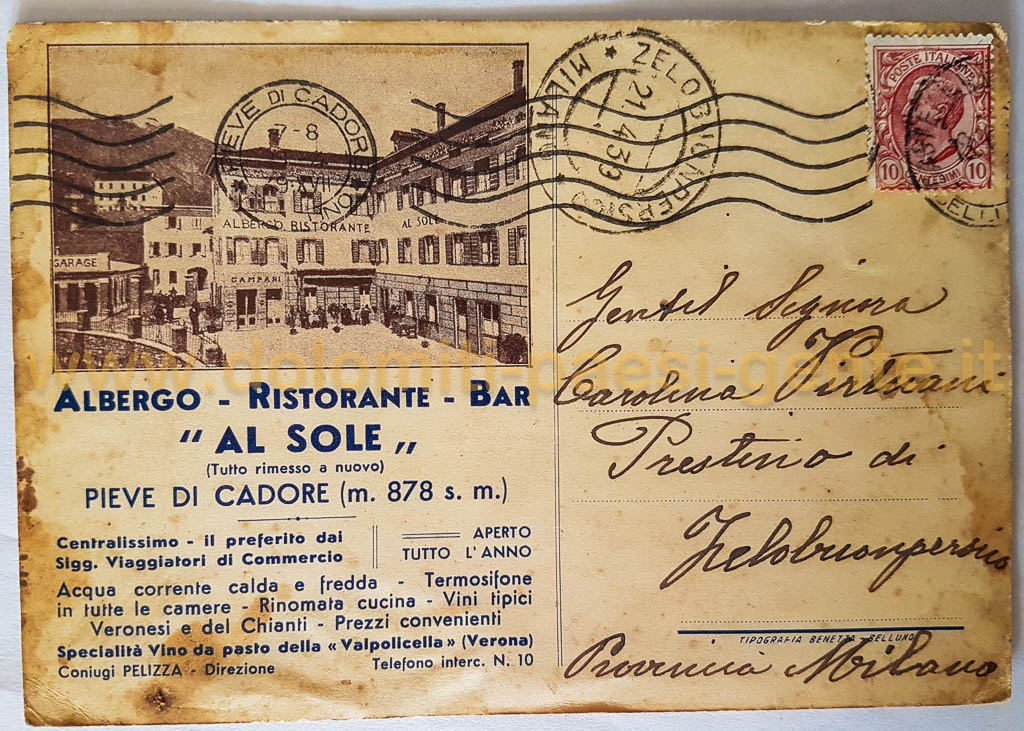 PIEVE DI CADORE
7-8
XVII
ALBERGO RISTORANTE
AL SOLE
GARAGE
CAMPARI
ALBERGO - RISTORANTE - BAR
" AL SOLE „
(Tutto rimesso a nuovo)
PIEVE DI CADORE (m. 878 s. m.)
Centralissimo - il preferito dai
Sigg. Viaggiatori di Commercio
APERTO
TUTTO L'ANNO
Acqua corrente calda e fredda - Termosifone
in tutte le camere - Rinomata cucina - Vini tipici
Veronesi e del Chianti - Prezzi convenienti
Specialità Vino da pasto della « Valpolicella » (Verona)
Coniugi PELIZZA - Direzione
Telefono interc. N. 10
ZELO BUONPERSICO
* MILANO *
21 4 39
POSTE ITALIANE
10 CENTESIMI 10
Gentil Signora
Carolina
Prestino di
Zelobuonpersico
TIPOGRAFIA BENETTA - BELLUNO
Provincia Milano
www.dolomiti-paesi-gente.it